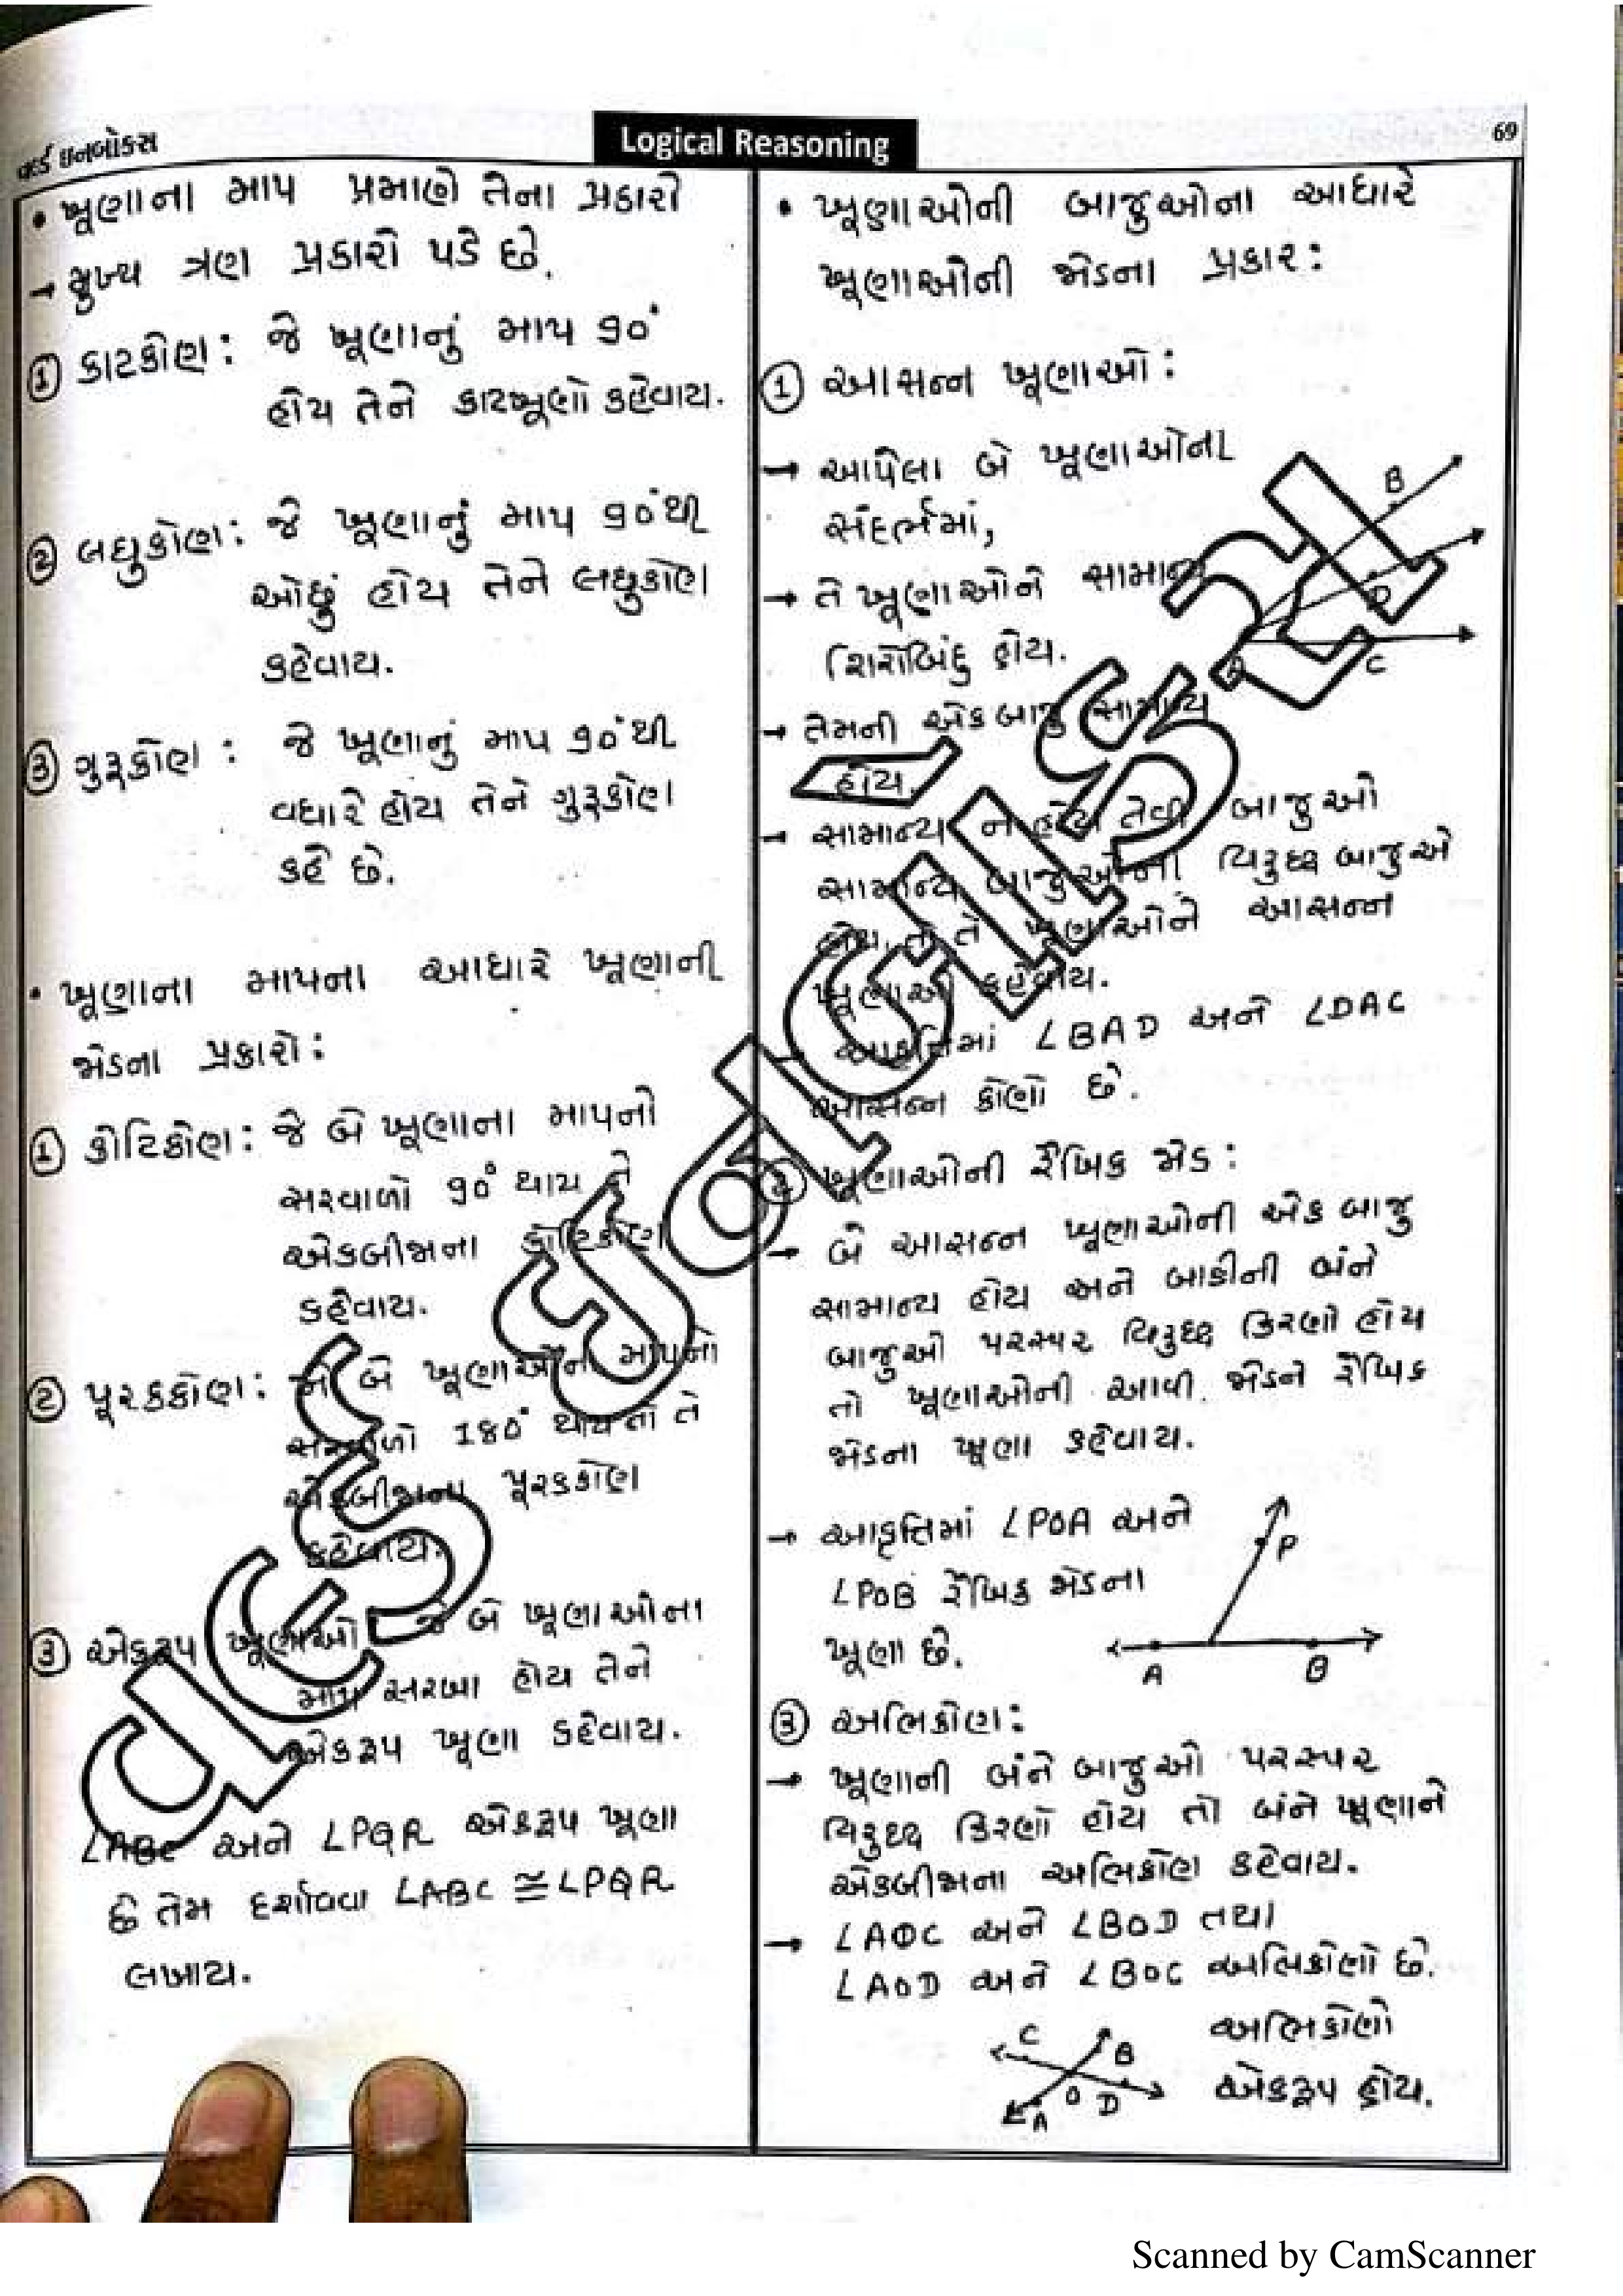 વર્લ્ડ ઇનબોક્સ
Logical Reasoning
69
• ખૂણાના માપ પ્રમાણે તેના પ્રકારો
→ મુખ્ય ત્રણ પ્રકારો પડે છે.
① કાટકોણ: જે ખૂણાનું માપ 90°
હોય તેને કાટખૂણો કહેવાય.
② લઘુકોણ: જે ખૂણાનું માપ 90°થી
ઓછું હોય તેને લઘુકોણ
કહેવાય.
③ ગુરૂકોણ : જે ખૂણાનું માપ 90°થી
વધારે હોય તેને ગુરૂકોણ
કહે છે.
• ખૂણાના માપના આધારે ખૂણાની
જોડના પ્રકારો:
① કોટિકોણ: જે બે ખૂણાના માપનો
સરવાળો 90° થાય તે
એકબીજાના કોટિકોણ
કહેવાય.
② પૂરકકોણ: જે બે ખૂણાઓના માપનો
સરવાળો 180° થાય તો તે
એકબીજાના પૂરકકોણ
કહેવાય.
③ એકરૂપ ખૂણાઓ જે બે ખૂણાઓના
માપ સરખા હોય તેને
એકરૂપ ખૂણા કહેવાય.
∠ABC અને ∠PQR એકરૂપ ખૂણા
છે તેમ દર્શાવવા ∠ABC ≅ ∠PQR
લખાય.
• ખૂણાઓની બાજુઓના આધારે
ખૂણાઓની જોડના પ્રકાર:
① આસન્ન ખૂણાઓ:
→ આપેલા બે ખૂણાઓના
સંદર્ભમાં,
→ તે ખૂણાઓને સામાન્ય
શિરોબિંદુ હોય.
B
D
A
C
→ તેમની એક બાજુ સામાન્ય
હોય.
→ સામાન્ય ન હોય તેવી બાજુઓ
સામાન્ય બાજુઓની વિરુદ્ધ બાજુએ
હોય તો તે ખૂણાઓને આસન્ન
ખૂણાઓ કહેવાય.
આકૃતિમાં ∠BAD અને ∠DAC
આસન્ન કોણો છે.
② ખૂણાઓની રૈખિક જોડ:
→ બે આસન્ન ખૂણાઓની એક બાજુ
સામાન્ય હોય અને બાકીની બંને
બાજુઓ પરસ્પર વિરુદ્ધ કિરણો હોય
તો ખૂણાઓની આવી જોડને રૈખિક
જોડના ખૂણા કહેવાય.
→ આકૃતિમાં ∠POA અને
∠POB રૈખિક જોડના
ખૂણા છે.
P
A
B
③ અભિકોણ:
→ ખૂણાની બંને બાજુઓ પરસ્પર
વિરુદ્ધ કિરણો હોય તો બંને ખૂણાને
એકબીજાના અભિકોણ કહેવાય.
→ ∠AOC અને ∠BOD તથા
∠AOD અને ∠BOC અભિકોણો છે.
C
B
O
D
A
અભિકોણો
એકરૂપ હોય.
Scanned by CamScanner